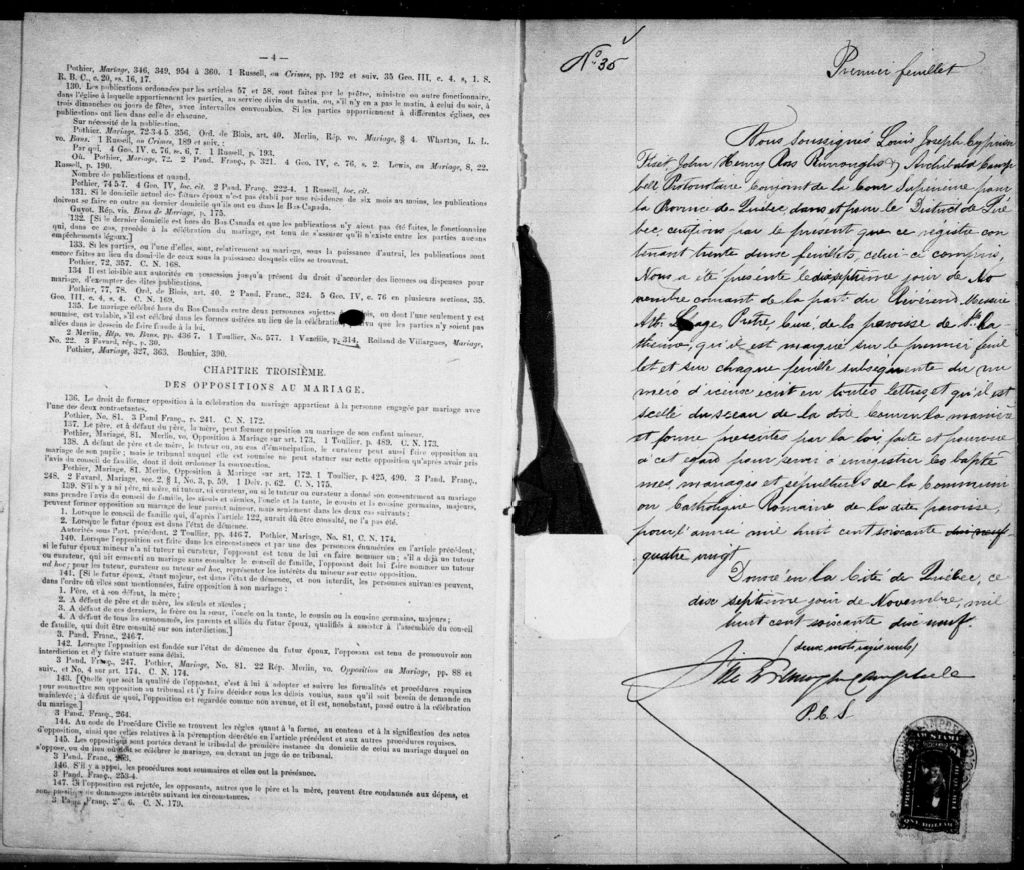 — 4 —
Pothier, Mariage, 346, 349, 954 à 360. 1 Russell, on Crimes, pp. 192 et suiv. 35 Geo. III, c. 4. s, 1. S.
R. B. C., c. 20, ss. 16, 17.
130. Les publications ordonnées par les articles 57 et 58, sont faites par le prêtre, ministre ou autre fonctionnaire,
dans l'église à laquelle appartiennent les parties, au service divin du matin, ou, s'il n'y en a pas le matin, à celui du soir, à
trois dimanches ou jours de fêtes, avec intervalles convenables. Si les parties appartiennent à différentes églises, ces
publications ont lieu dans celle de chacune.
Sur nécessité de la publication.
Pothier, Mariage, 72-3-4-5. 356. Ord. de Blois, art. 40. Merlin, Rép. vo. Mariage, § 4. Wharton, L. L.
vo. Bans. 1 Russell, on Crimes, 189 et suiv. :
Par qui. 4 Geo. IV, c. 76, ss. 6, 7. 1 Russell, p. 193.
Où. Pothier, Mariage, 72. 2 Pand. Franç., p. 321. 4 Geo. IV, c. 76, s. 2. Lewis, on Mariage, 8, 22.
Russell, p. 190.
Nombre de publications et quand.
Pothier, 74 5-7. 4 Geo. IV, loc. cit. 2 Pand. Franç., 222-4. 1 Russell, loc. cit.
131. Si le domicile actuel des futurs époux n'est pas établi par une résidence de six mois au moins, les publications
doivent se faire en outre au dernier domicile qu'ils ont eu dans le Bas-Canada.
Guyot. Rép. vis. Bans de Mariage, p. 175.
132. [Si leur dernier domicile est hors du Bas Canada et que les publications n'y aient pas été faites, le fonctionnaire
qui, dans ce cas, procède à la célébration du mariage, est tenu de s'assurer qu'il n'existe entre les parties aucuns
empêchements légaux.]
133. Si les parties, ou l'une d'elles, sont, relativement au mariage, sous la puissance d'autrui, les publications sont
encore faites au lieu du domicile de ceux sous la puissance desquels elles se trouvent.
Pothier, 72, 357. C. N. 168.
134 Il est loisible aux autorités en possession jusqu'à présent du droit d'accorder des licences ou dispenses pour
mariage, d'exempter des dites publications.
Pothier, 77, 78. Ord. de Blois, art. 40. 2 Pand. Franç., 324. 5 Geo. IV, c. 76 en plusieurs sections, 35.
Geo. III, c. 4, s. 4. C. N. 169.
135. Le mariage célébré hors du Bas Canada entre deux personnes sujettes à ses lois, ou dont l'une seulement y est
soumise, est valable, s'il est célébré dans les formes usitées au lieu de la célébration, pourvu que les parties n'y soient pas
allées dans le dessein de faire fraude à la loi.
2 Merlin, Rép. vo. Bans, pp. 436 7. 1 Toullier, No. 577. 1 Vazeille, p. 314. Rolland de Villargues, Mariage,
No. 22. 3 Favard, rép., p. 30.
Pothier, Mariage, 327, 363. Bouhier, 390.
CHAPITRE TROISIÈME.
DES OPPOSITIONS AU MARIAGE.
136. Le droit de former opposition à la célébration du mariage appartient à la personne engagée par mariage avec
l'une des deux contractantes.
Pothier, No. 81. 3 Pand Franç., p. 241. C. N. 172.
137. Le père, et à défaut du père, la mère, peut former opposition au mariage de son enfant mineur.
Pothier, Mariage, 81. Merlin, vo. Opposition à Mariage sur art. 173. 1 Toullier, p. 489. C. N. 173.
138. A défaut de père et de mère, le tuteur ou, au cas d'émancipation, le curateur peut aussi faire opposition au
mariage de son pupille ; mais le tribunal auquel elle est soumise ne peut statuer sur cette opposition qu'après avoir pris
l'avis du conseil de famille, dont il doit ordonner la convocation.
Pothier, Mariage, 81. Merlin, Opposition à Mariage sur art. 172. 1 Toullier, p. 425, 490. 3 Pand. Franç.,
248. 2 Favard, Mariage, sec. 2, § 1, No. 3, p. 59. 1 Delv. p. 62. C. N. 175.
139. S'il n'y a ni père, ni mère, ni tuteur, ni curateur, ou si le tuteur ou curateur a donné son consentement au mariage
sans prendre l'avis du conseil de famille, les aïeuls et aïeules, l'oncle et la tante, le cousin et la cousine germains, majeurs,
peuvent former opposition au mariage de leur parent mineur, mais seulement dans les deux cas suivants :
1. Lorsque le conseil de famille qui, d'après l'article 122, aurait dû être consulté, ne l'a pas été.
2. Lorsque le futur époux est dans l'état de démence.
Autorités sous l'art. précédent. 2 Toullier, pp. 446-7. Pothier, Mariage, No. 81, C. N. 174.
140. Lorsque l'opposition est faite dans les circonstances et par une des personnes énumérées en l'article précédent,
si le futur époux mineur n'a ni tuteur ni curateur, l'opposant est tenu de lui en faire nommer un ; s'il a déjà un tuteur
ou curateur, qui ait consenti au mariage sans consulter le conseil de famille, l'opposant doit lui faire nommer un tuteur
ad hoc ; pour les tuteur, curateur ou tuteur ad hoc, représenter les intérêts du mineur sur cette opposition.
141. [Si le futur époux, étant majeur, est dans l'état de démence, et non interdit, les personnes suivantes peuvent,
dans l'ordre où elles sont mentionnées, faire opposition à son mariage :
1. Père, et à son défaut, la mère ;
2. A défaut de père et de mère, les aïeuls et aïeules ;
3. A défaut de ces derniers, le frère ou la sœur, l'oncle ou la tante, le cousin ou la cousine germains, majeurs ;
4. A défaut de tous les susnommés, les parents et alliés du futur époux, qualifiés à assister à l'assemblée du conseil
de famille, qui doit être consulté sur son interdiction.]
3. Pand. Franç., 246-7.
142. Lorsque l'opposition est fondée sur l'état de démence du futur époux, l'opposant est tenu de promouvoir son
interdiction et d'y faire statuer sans délai.
3 Pand. Franç., 247. Pothier, Mariage, No. 81. 22 Rép. Merlin, vo. Opposition au Mariage, pp. 88 et
suiv., et No, 4 sur art. 174. C. N. 174.
143. [Quelle que soit la qualité de l'opposant, c'est à lui à adopter et suivre les formalités et procédures requises
pour soumettre son opposition au tribunal et l'y faire décider sous les délais voulus, sans qu'il soit besoin de demande en
mainlevée ; à défaut de quoi, l'opposition est regardée comme non avenue, et il est, nonobstant, passé outre à la célébration
du mariage.]
3 Pand. Franç., 264.
144. Au code de Procédure Civile se trouvent les règles quant à la forme, au contenu et à la signification des actes
d'opposition, ainsi que celles relatives à la péremption décrétée en l'article précédent et aux autres procédures requises.
145. Les oppositions sont portées devant le tribunal de première instance du domicile de celui au mariage duquel on
s'oppose, ou du lieu où doit se célébrer le mariage, ou devant un juge de ce tribunal.
3 Pand. Franç., 253.
146. S'il y a appel, les procédures sont sommaires et elles ont la préséance.
3 Pand. Franç., 253-4.
147. Si l'opposition est rejetée, les opposants, autres que le père et la mère, peuvent être condamnés aux dépens, et
sont passibles de dommages intérêts suivant les circonstances.
3 Pand. Franç. 6. C. N. 179.
No. 35
Premier feuillet
Nous soussignés Louis Joseph Cyprien
Fiset John Henry Ross Burroughs & Archibald Camp
bell Protonotaire Conjoint de la Cour Supérieure pour
la Province de Québec, dans et pour le District de Qué
bec, certifions par le présent que ce registre con
tenant trente deux feuillets, celui-ci compris,
Nous a été présenté le dixseptième jour de No
vembre courant de la part du Révérend Messire
Ptre Curé, de la paroisse de Ste. Ca
therine, qu'il est marqué sur le premier feuil
let et sur chaque feuille subséquente du nu
méro d'iceux écrit en toutes lettres, et qu'il est
scellé du sceau de la dite Cour en la manière
et forme prescrites par la loi, faite et pourvue
à cet égard pour servir à enregistrer les baptê
mes, mariages et sépultures de la Communi
on Catholique Romaine de la dite paroisse,
pour l'année mil huit cent soixante dix neuf
quatre vingt
Donné en la Cité de Québec, ce
dix septième jour de Novembre, mil
huit cent soixante dix neuf.
(deux mots rayés nuls)
Fiset Burroughs Campbell
P. C. S.
ONE DOLLAR